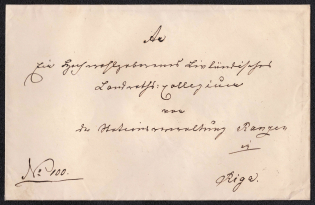 An
Ein Hochwohlgeborenes Livländisches
Landraths-Collegium
von
der Stationsverwaltung Ranzen
in
Riga.
No. 100.